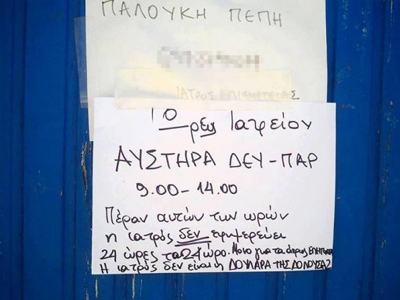 ΠΑΛΟΥΚΗ ΠΕΠΗ
ΙΑΤΡΟΣ
Ιατρείου
ΑΥΣΤΗΡΑ ΔΕΥ-ΠΑΡ
9.00-14.00
Πέραν αυτών των ωρών
η ιατρός δεν εφημερεύει
24 ώρες το 24ωρο. Μόνο για τα
Η ιατρός δεν είναι η ΔΟΥΛΑΡΑ ΤΗΣ ΔΟΝΟΥΣΑΣ